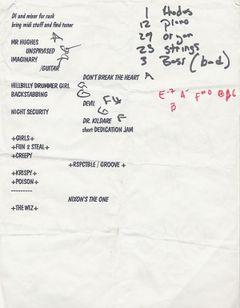 DI and mixer for rack
bring midi stuff and find tuner
MR HUGHES
UNSUPRSSED
IMAGINARY
/GUITAR
DON'T BREAK THE HEART A
HILLBILLY DRUMMER GIRL G
BACKSTABBING
DEVIL F#
NIGHT SECURITY G
DR. KILDARE F
short DEDICATION JAM
+GIRLS+
+FUN 2 STEAL+
+CREEPY
+RSPCTBLE / GROOVE +
+KRISPY
+POISON+
----------
NIXON'S THE ONE
+THE WIZ+
1 Rhodes
12 piano
29 organ
23 strings
3 Bass (bad)